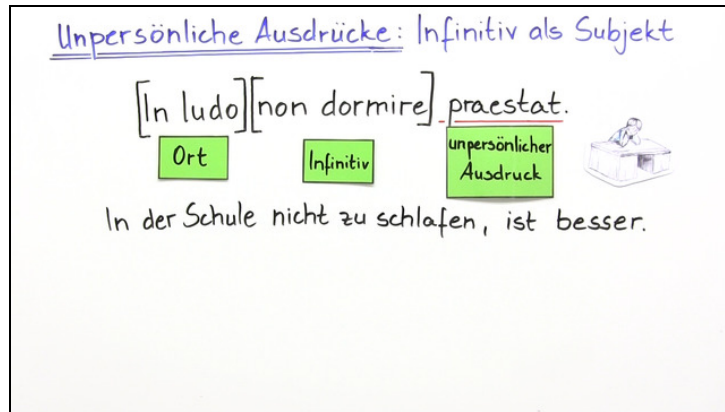 Unpersönliche Ausdrücke: Infinitiv als Subjekt
[In ludo][non dormire] praestat.
Ort Infinitiv unpersönlicher Ausdruck
In der Schule nicht zu schlafen, ist besser.